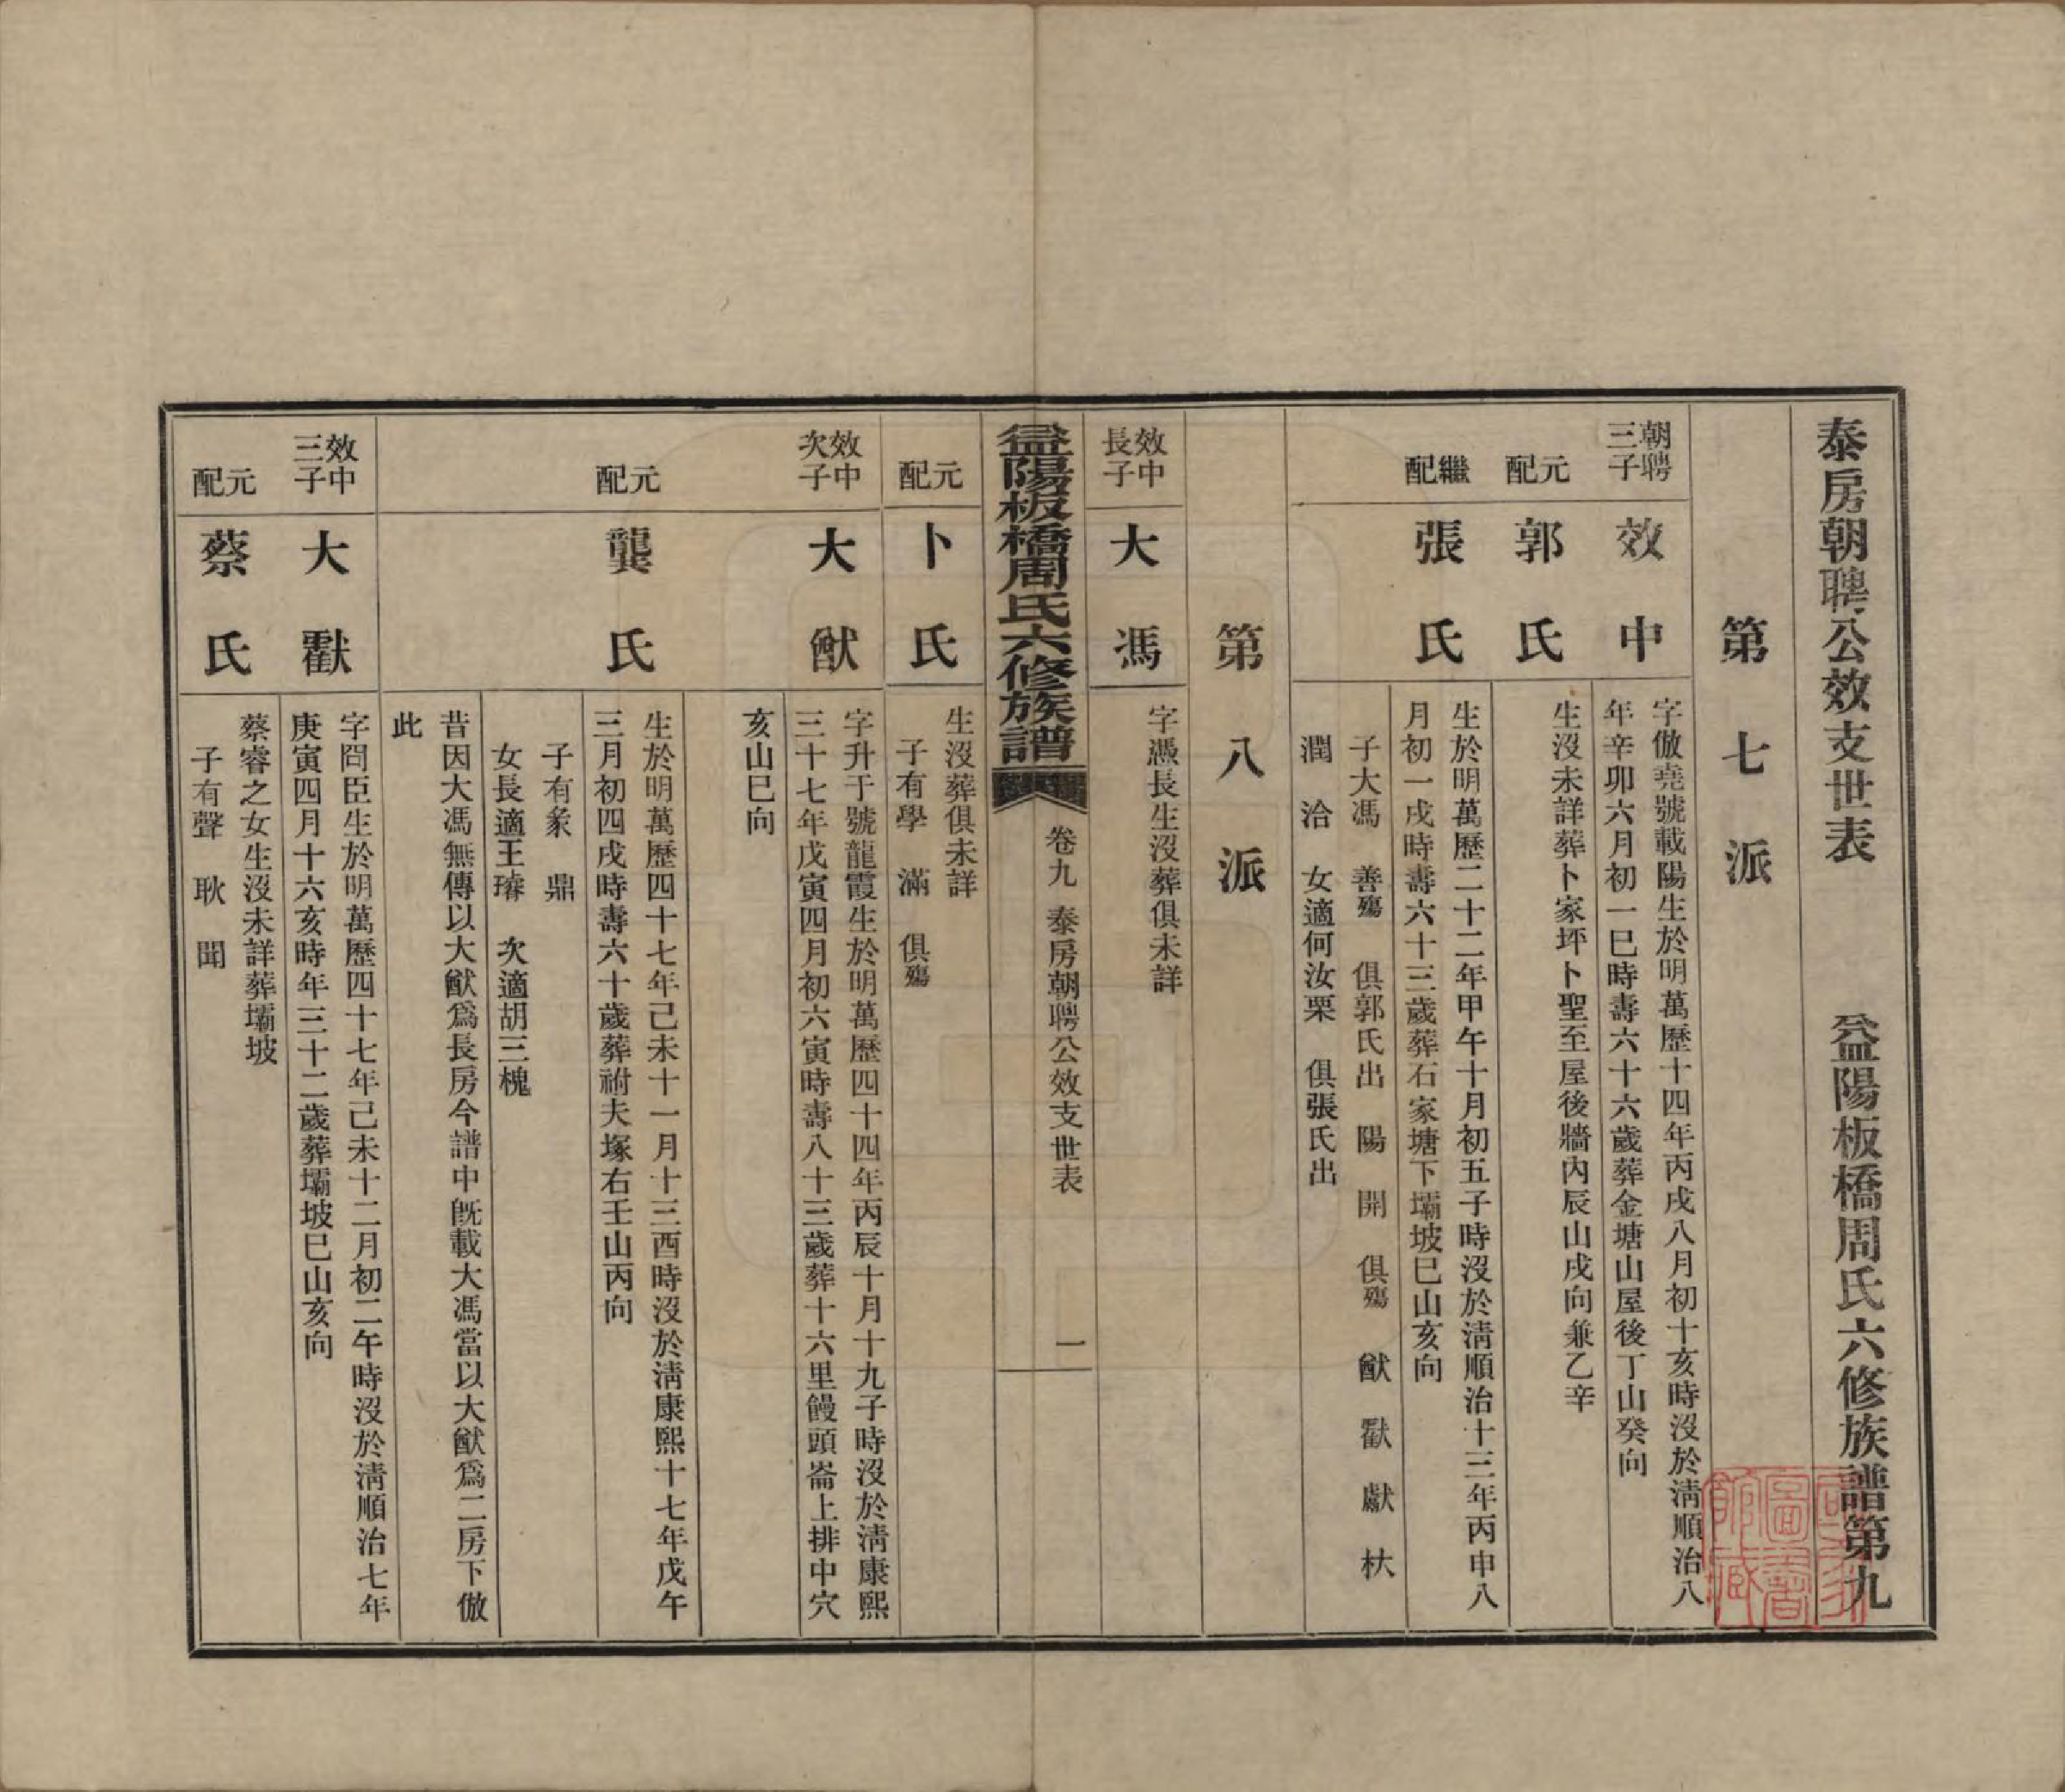 泰房朝聘公效支世表
益陽板橋周氏六修族譜第九
第七派
朝聘三子
效中
字倣堯號載陽生於明萬歷十四年丙戌八月初十亥時沒於淸順治八
年辛卯六月初一巳時壽六十六歲葬金塘山屋後丁山癸向
元配
郭氏
生沒未詳葬卜家坪卜聖至屋後牆內辰山戌向兼乙辛
繼配
張氏
生於明萬歷二十二年甲午十月初五子時沒於淸順治十三年丙申八
月初一戌時壽六十三歲葬石家塘下壩坡巳山亥向
子大馮 善殤 俱郭氏出 陽 開 俱殤 猷 㺉 獻 杕
潤 洽 女適何汝栗 俱張氏出
第八派
效中長子
大馮
字憑長生沒葬俱未詳
益陽板橋周氏六修族譜
卷九 泰房朝聘公效支世表
一
元配
卜氏
生沒葬俱未詳
子有學 滿 俱殤
效中次子
大猷
字升于號龍霞生於明萬歷四十四年丙辰十月十九子時沒於淸康熙
三十七年戊寅四月初六寅時壽八十三歲葬十六里饅頭崙上排中穴
亥山巳向
元配
龔氏
生於明萬歷四十七年己未十一月十三酉時沒於淸康熙十七年戊午
三月初四戌時壽六十歲葬祔夫塚右壬山丙向
子有象 鼎
女長適王璿 次適胡三槐
昔因大馮無傳以大猷爲長房今譜中旣載大馮當以大猷爲二房下倣
此
效中三子
大㺉
字冏臣生於明萬歷四十七年己未十二月初二午時沒於淸順治七年
庚寅四月十六亥時年三十二歲葬壩坡巳山亥向
元配
蔡氏
蔡睿之女生沒未詳葬壩坡
子有聲 耿 聞